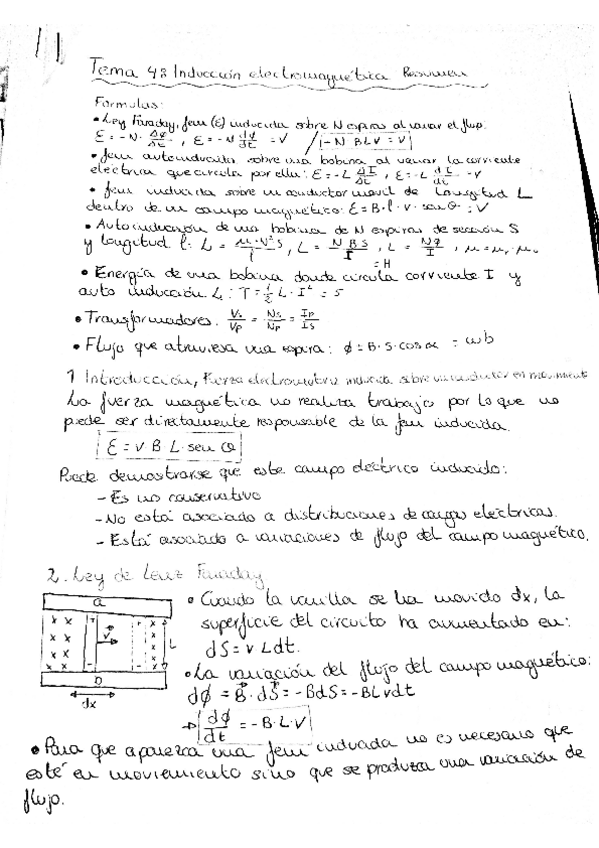 Tema 4: Inducción electromagnética Resumen
Formulas:
• Ley Faraday, fem (ε) inducida sobre N espiras al variar el flujo.
ε = -N · Δφ/Δt , ε = -N dφ/dt = V /-N BLV = V/
• fem autoinducida sobre una bobina al variar la corriente
eléctrica que circula por ella: ε = -L ΔI/Δt , ε = -L dI/dt = V
• fem inducida sobre un conductor móvil de longitud L
dentro de un campo magnético: ε = B · l · v · sen θ = V
• Autoinducción de una bobina de N espiras de sección S
y longitud l: L = μ·N²S/l , L = NBS/I , L = Nφ/I , μ = μr · μo
= H
• Energía de una bobina donde circula corriente I y
auto inducción L: T = 1/2 L · I² = J
• Transformadores. Vs/Vp = Ns/Np = Ip/Is
• Flujo que atraviesa una espira: φ = B · S · cos α = wb
1 Introducción, Fuerza electromotriz inducida sobre un conductor en movimiento
La fuerza magnética no realiza trabajo por lo que no
puede ser directamente responsable de la fem inducida.
ε = V B L · sen θ
Puede demostrarse que este campo eléctrico inducido:
- Es no conservativo
- No está asociado a distribuciones de cargas eléctricas.
- Está asociado a variaciones de flujo del campo magnético.
2. Ley de Lenz Faraday
a
x x + + x
v
L
b
dx
• Cuando la varilla se ha movido dx, la
superficie del circuito ha aumentado en:
dS = v L dt.
• La variación del flujo del campo magnético:
dφ = B · dS = -BdS = -BLvdt
→ dφ/dt = -B·L·V
• Para que aparezca una fem inducida no es necesario que
esté en moviemiento sino que se produzca una variación de
flujo.